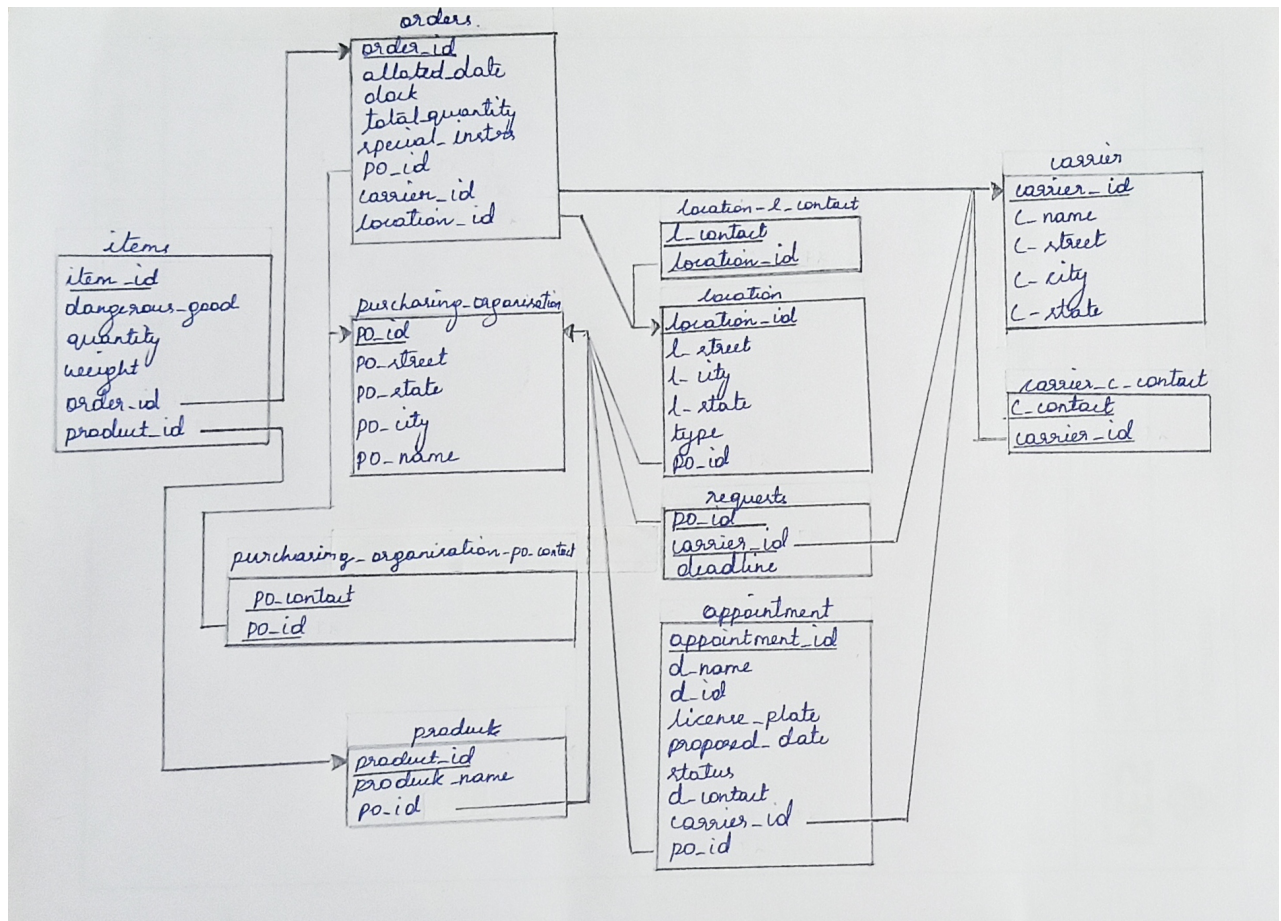 orders
order_id
alloted_date
clock
total_quantity
special_instrs
po_id
carrier_id
location_id
items
item_id
dangerous_good
quantity
weight
order_id
product_id
purchasing_organisation
po_id
po_street
po_state
po_city
po_name
purchasing_organisation-po_contact
po_contact
po_id
product
product_id
product_name
po_id
location-l_contact
l_contact
location_id
location
location_id
l_street
l_city
l_state
type
po_id
requests
po_id
carrier_id
deadline
appointment
appointment_id
d_name
d_id
license_plate
proposed_date
status
d_contact
carrier_id
po_id
carrier
carrier_id
c_name
c_street
c_city
c_state
carrier_c_contact
c_contact
carrier_id